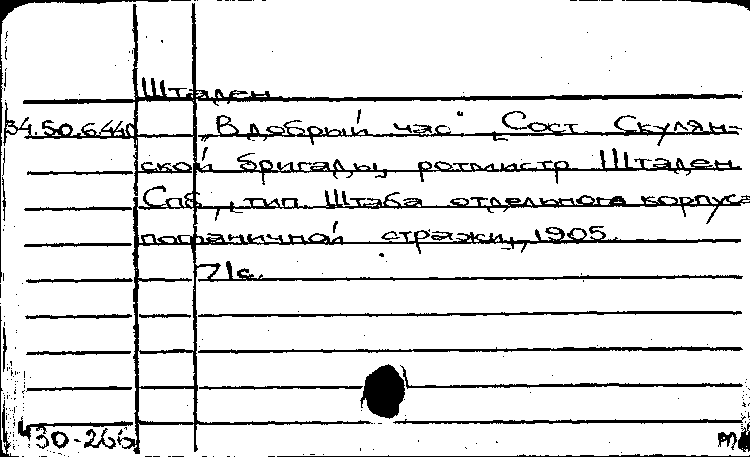 Штаден
34.50.6.440 „В добрый час" [Сост. Скулян-
ской бригады, ротмистр Штаден
Спб., тип. Штаба отдельного корпуса
пограничной стражи, 1905.
71с.
430-266